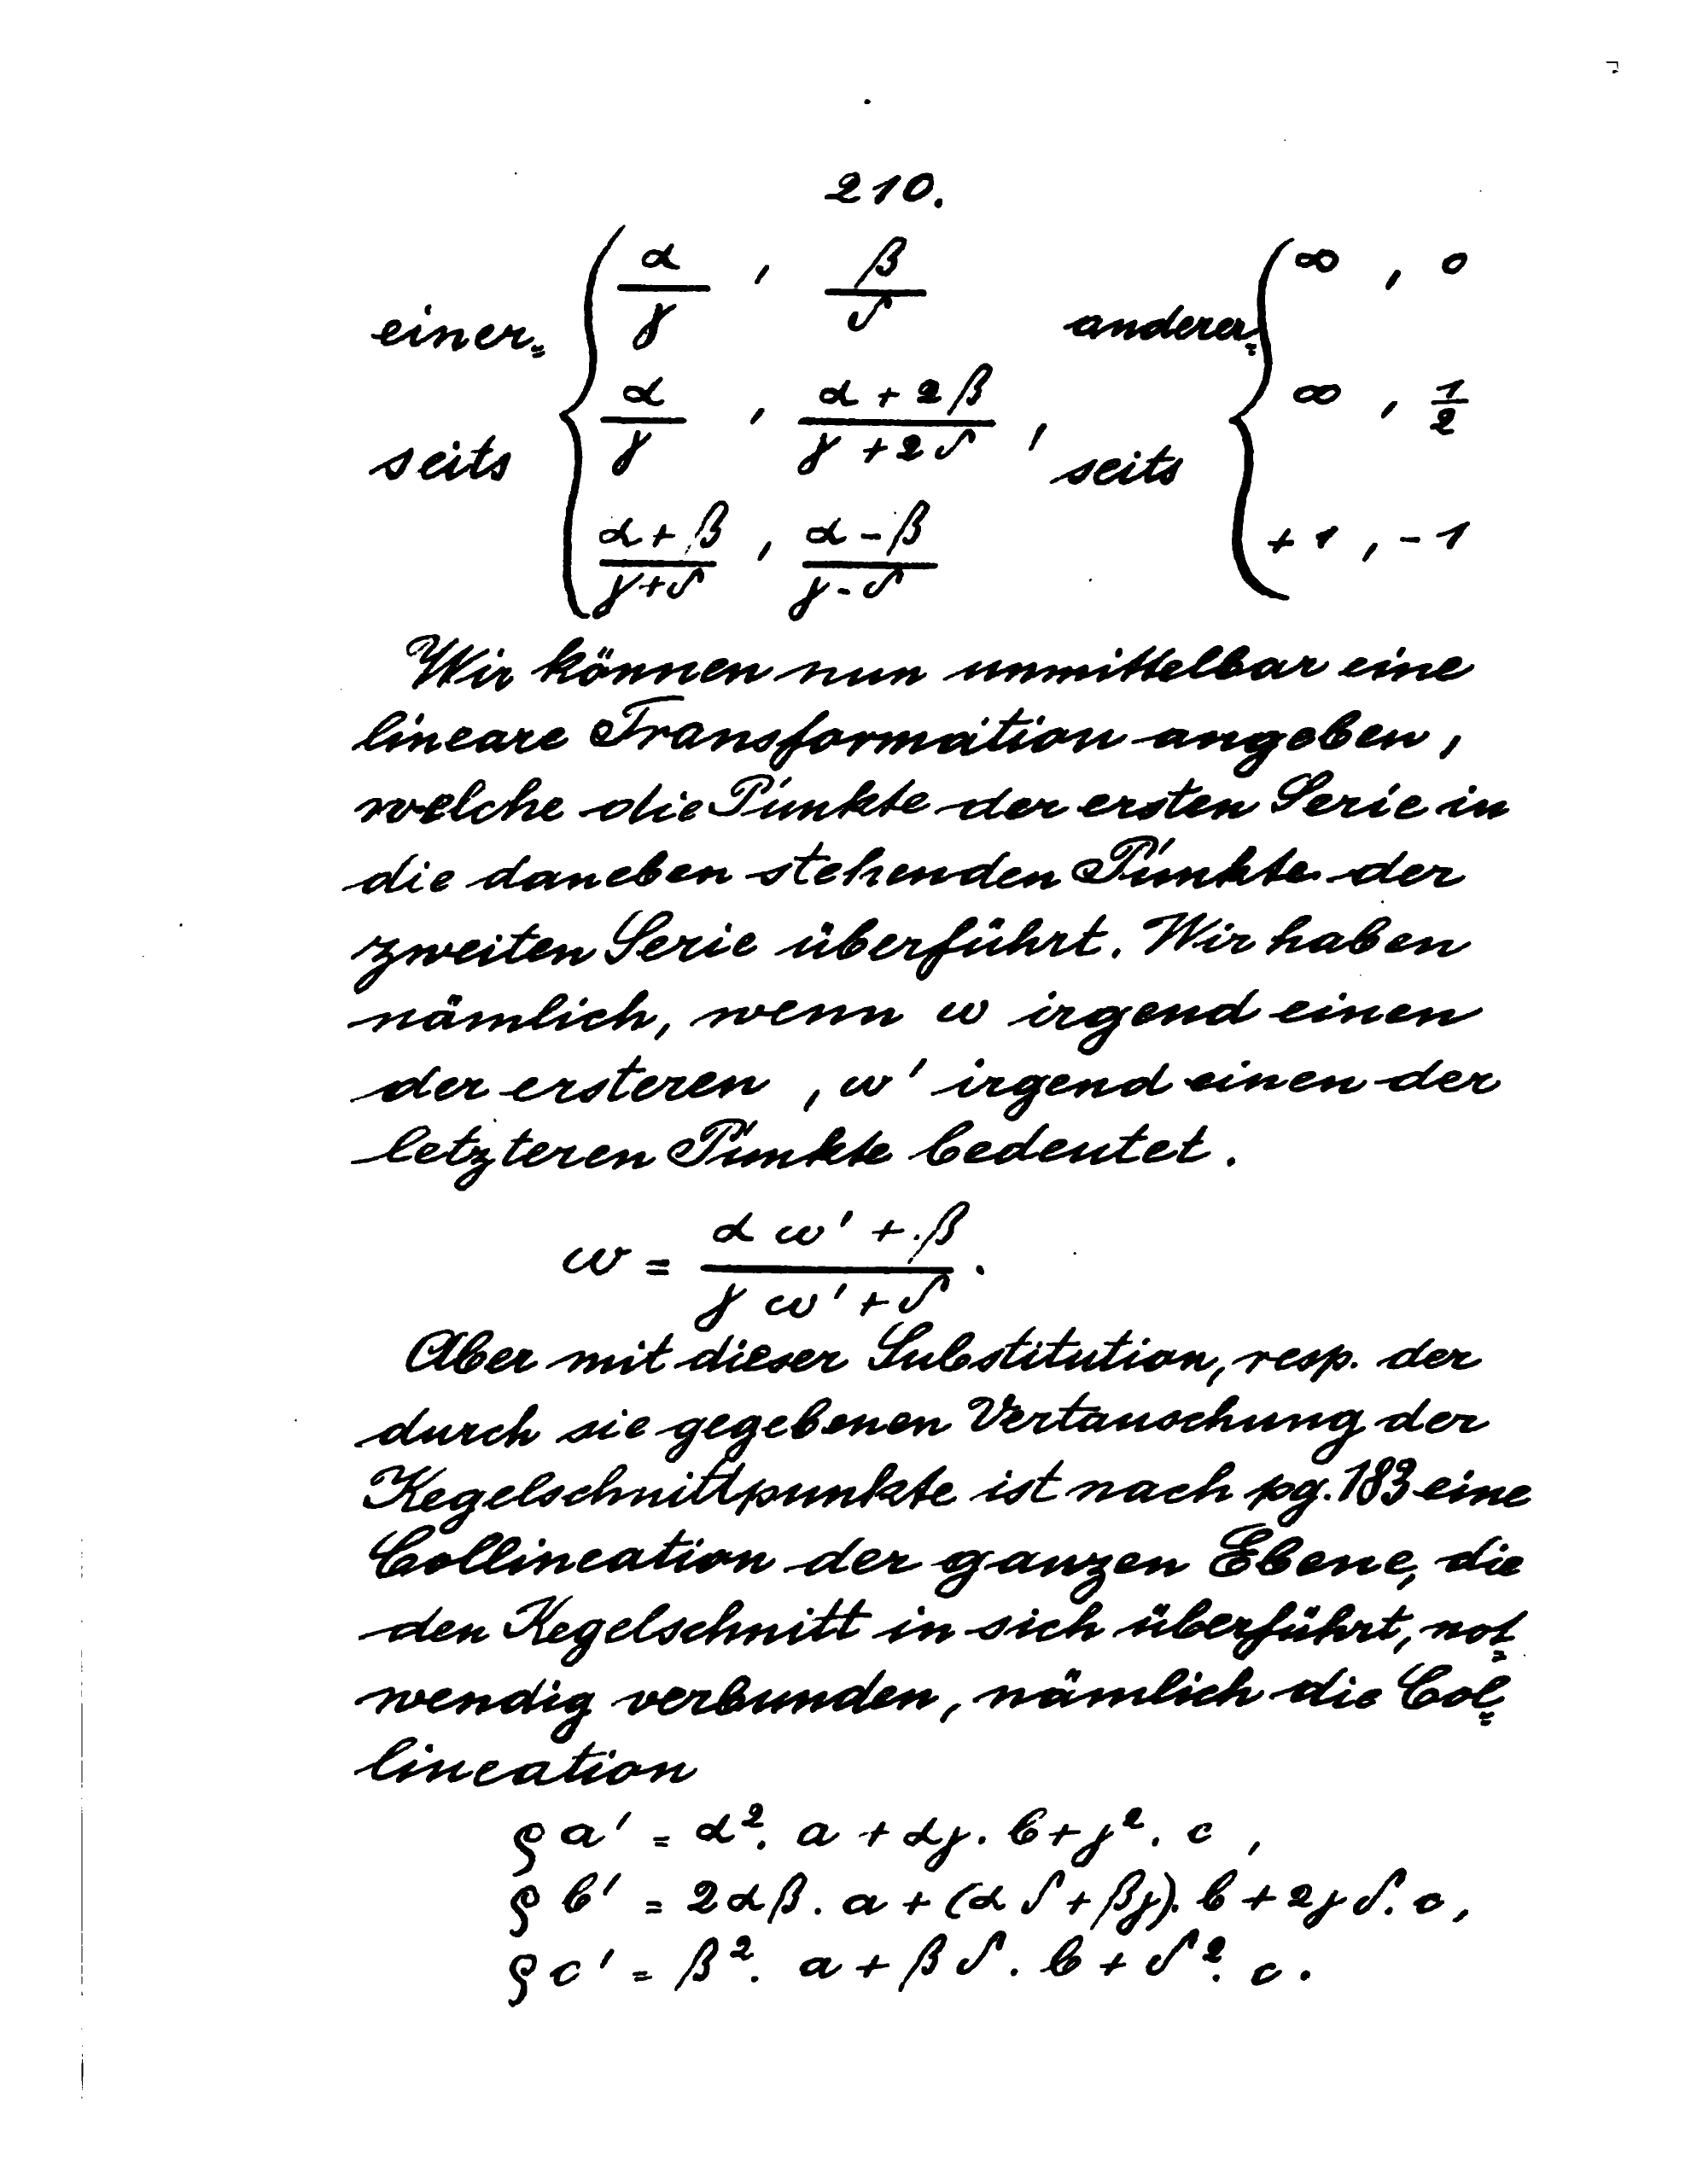 210.
einer= { α/γ , β/δ anderer= { ∞ , 0
seits { α/γ , (α + 2β)/(γ + 2δ) , seits { ∞ , 1/2
(α + β)/(γ + δ) , (α - β)/(γ - δ) +1 , -1
Wir können nun unmittelbar eine
lineare Transformation angeben,
welche die Punkte der ersten Serie in
die daneben stehenden Punkte der
zweiten Serie überführt. Wir haben
nämlich, wenn ω irgend einen
der ersteren , ω' irgend einen der
letzteren Punkte bedeutet.
ω = (α ω' + β)/(γ ω' + δ) .
Aber mit dieser Substitution, resp. der
durch sie gegebenen Vertauschung der
Kegelschnittpunkte ist nach pg. 183 eine
Collineation der ganzen Ebene, die
den Kegelschnitt in sich überführt, not=
wendig verbunden, nämlich die Col=
lineation
ϱ a' = α². a + αγ. b + γ². c ,
ϱ b' = 2αβ. a + (αδ + βγ). b + 2γδ. c ,
ϱ c' = β². a + βδ. b + δ². c .